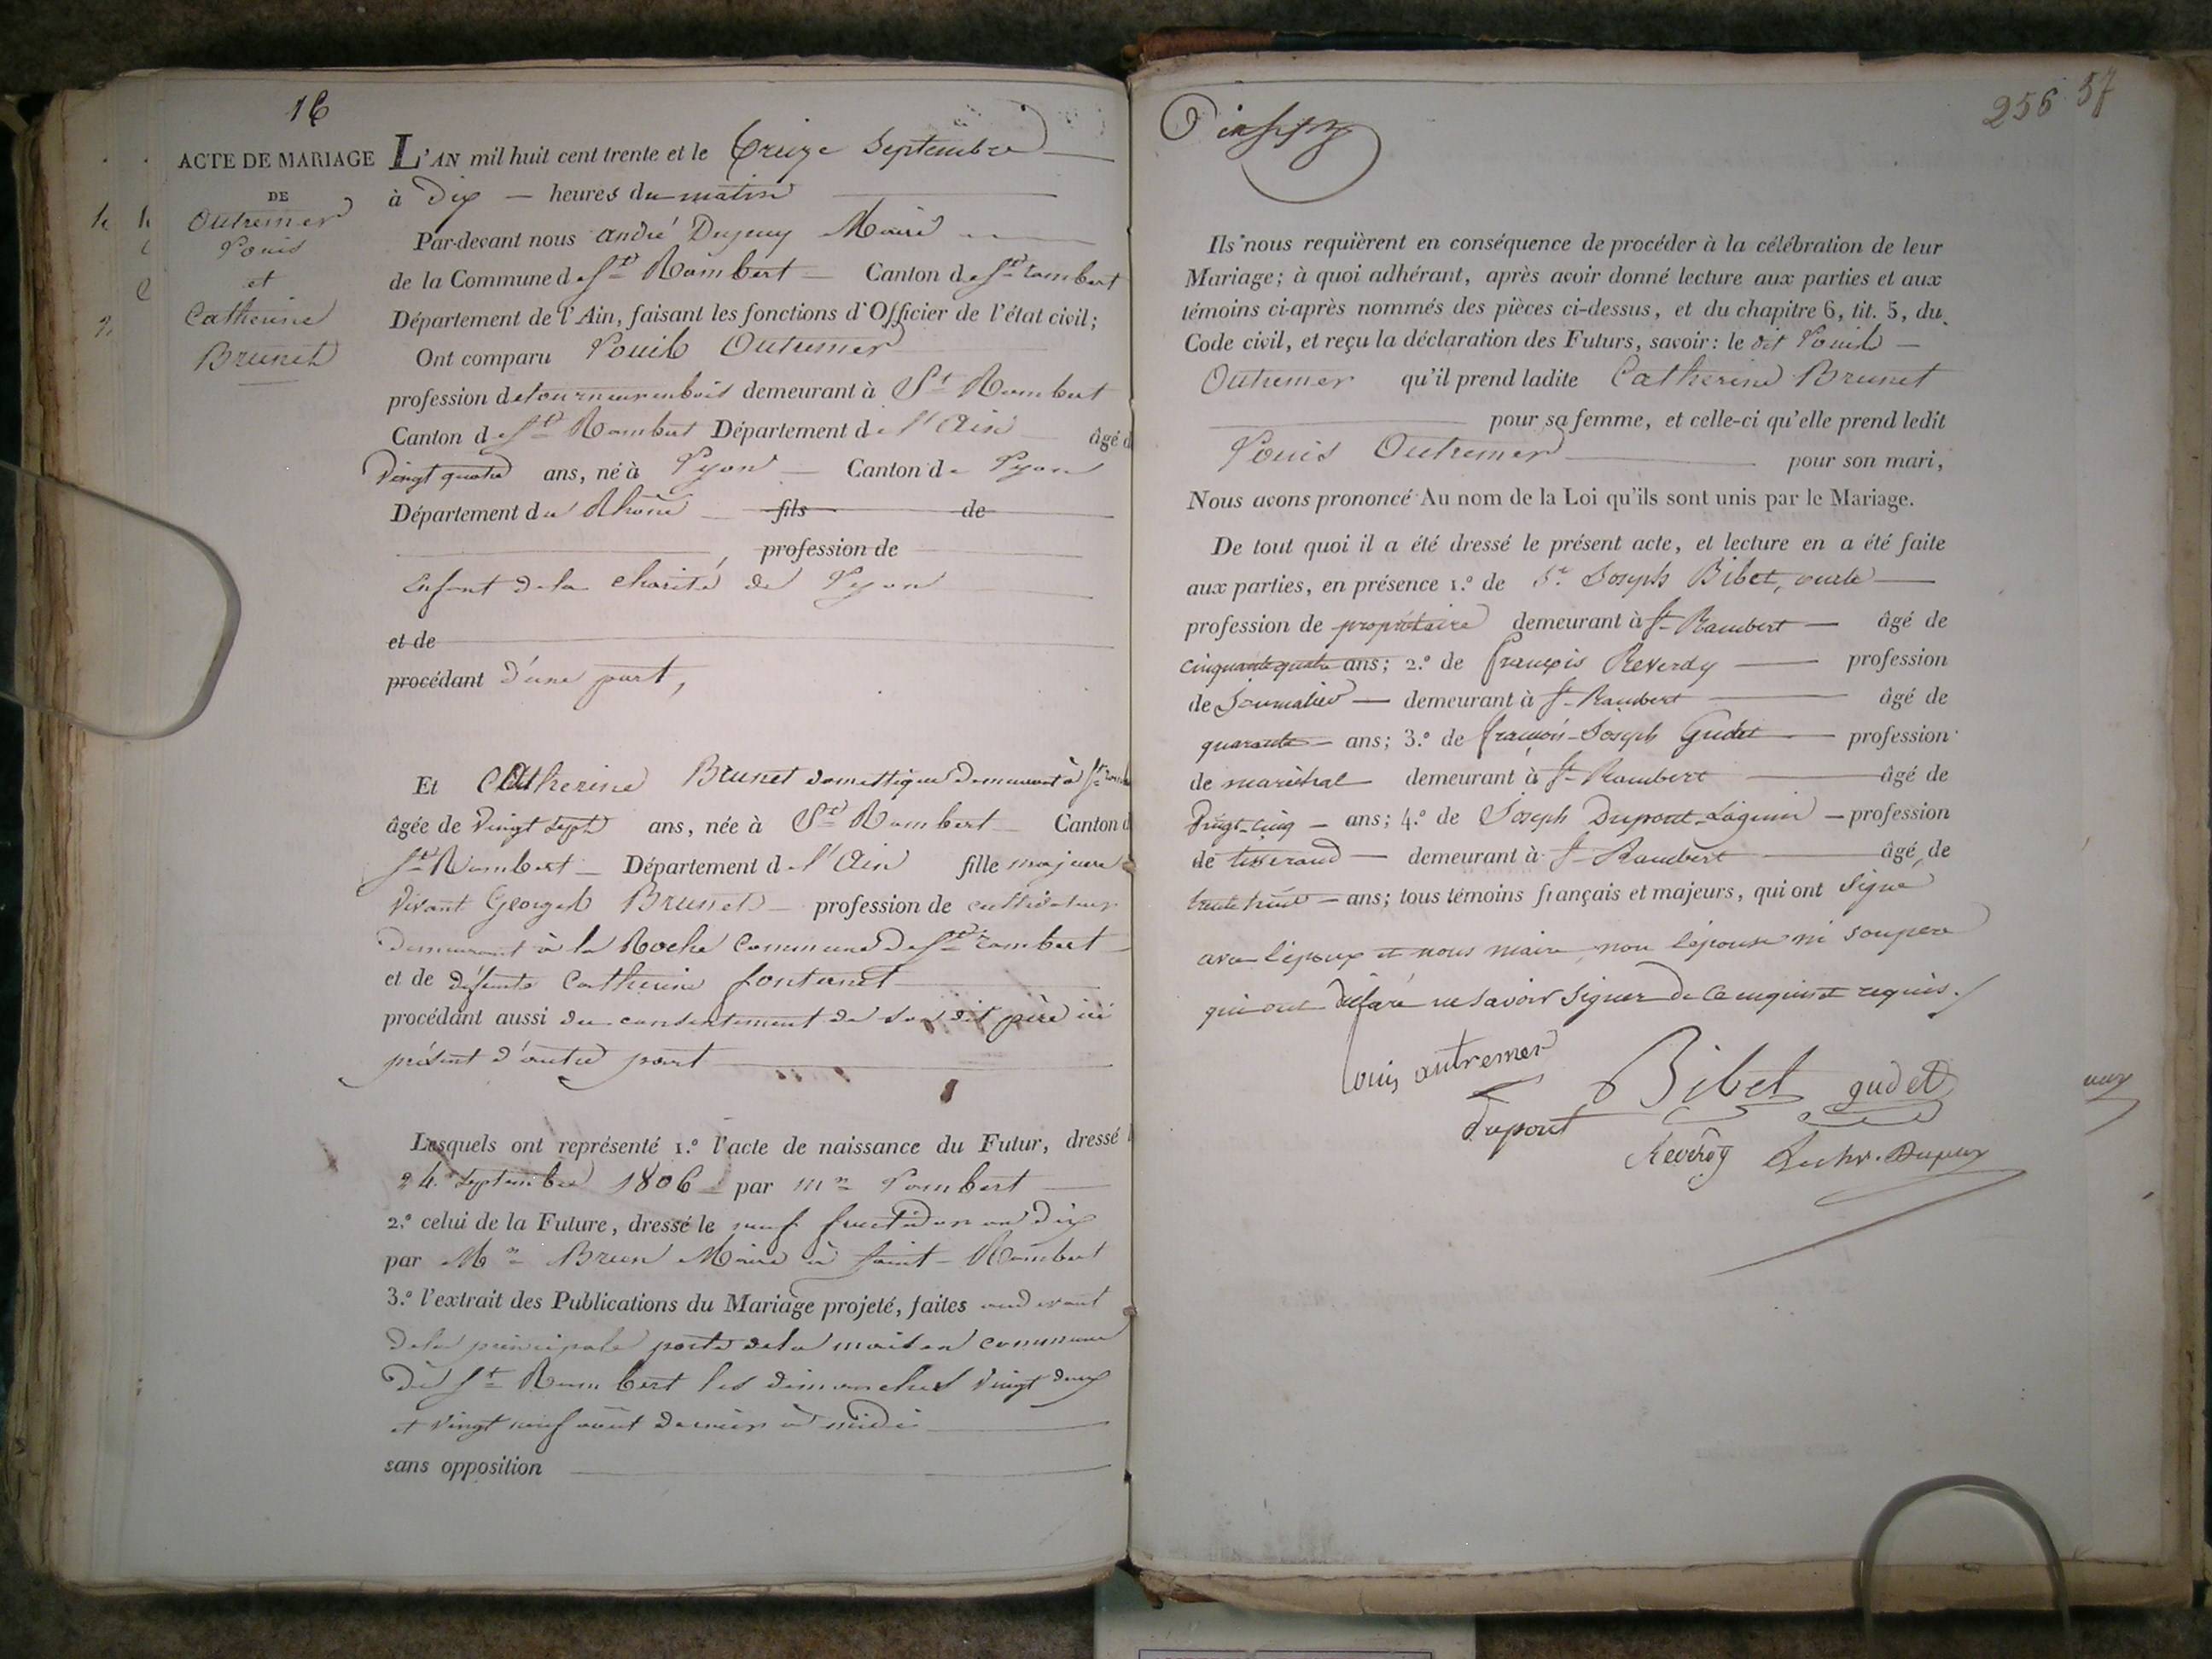 16
ACTE DE MARIAGE
DE
Outremer
Louis
et
Catherine
Brunet
L'AN mil huit cent trente et le treize Septembre
à Dix — heures du matin
Par-devant nous andré Dupuy Maire
de la Commune de St Rambert — Canton de St rambert
Département de l'Ain, faisant les fonctions d'Officier de l'état civil;
Ont comparu Louis Outremer
profession de tourneur en bois demeurant à St Rambert
Canton de St Rambert Département de l'Ain âgé d
Vingt quatre ans, né à Lyon — Canton de Lyon
Département du Rhône — fils de
profession de
Enfant de la charité de Lyon
et de
procédant d'une part,
Et Catherine Brunet domestique demeurant à St
âgée de Vingt Sept ans, née à St Rambert — Canton d
St Rambert — Département de l'Ain fille majeure
Vivant Georges Brunet — profession de cultivateur
demeurant à la Roche Commune de St rambert
et de défunte Catherine fontanet
procédant aussi du consentement de son dit père ici
présent d'autre part
Lesquels ont représenté 1.º l'acte de naissance du Futur, dressé l
24 Septembre 1806 par Mr Lombert
2.º celui de la Future, dressé le neuf fructidor an dix
par Mr Brun Maire à Saint-Rambert
3.º l'extrait des Publications du Mariage projeté, faites audevant
de la principale porte de la maison commune
de St Rambert les dimanches Vingt deux
et vingt neuf août dernier à midi
sans opposition
256 57
Ils nous requièrent en conséquence de procéder à la célébration de leur
Mariage; à quoi adhérant, après avoir donné lecture aux parties et aux
témoins ci-après nommés des pièces ci-dessus, et du chapitre 6, tit. 5, du
Code civil, et reçu la déclaration des Futurs, savoir: le dit Louis —
Outremer qu'il prend ladite Catherine Brunet
pour sa femme, et celle-ci qu'elle prend ledit
Louis Outremer pour son mari,
Nous avons prononcé Au nom de la Loi qu'ils sont unis par le Mariage.
De tout quoi il a été dressé le présent acte, et lecture en a été faite
aux parties, en présence 1.º de Sr Joseph Bibet, oncle
profession de propriétaire demeurant à St Rambert — âgé de
cinquante quatre ans; 2.º de françois Reverdy — profession
de Journalier — demeurant à St Rambert — âgé de
quarante — ans; 3.º de françois-Joseph Gudet — profession
de maréchal demeurant à St Rambert — âgé de
Vingt-cinq — ans; 4.º de Joseph Dupont-Laguin — profession
de tisserand — demeurant à St Rambert — âgé de
trente huit — ans; tous témoins français et majeurs, qui ont Signé
avec l'époux et nous maire, non l'épouse ni son père
qui ont déclaré ne savoir Signer de ce enquis et requis./
Louis outremer
Bibet gudet
dupont
Reverdy Dupuy